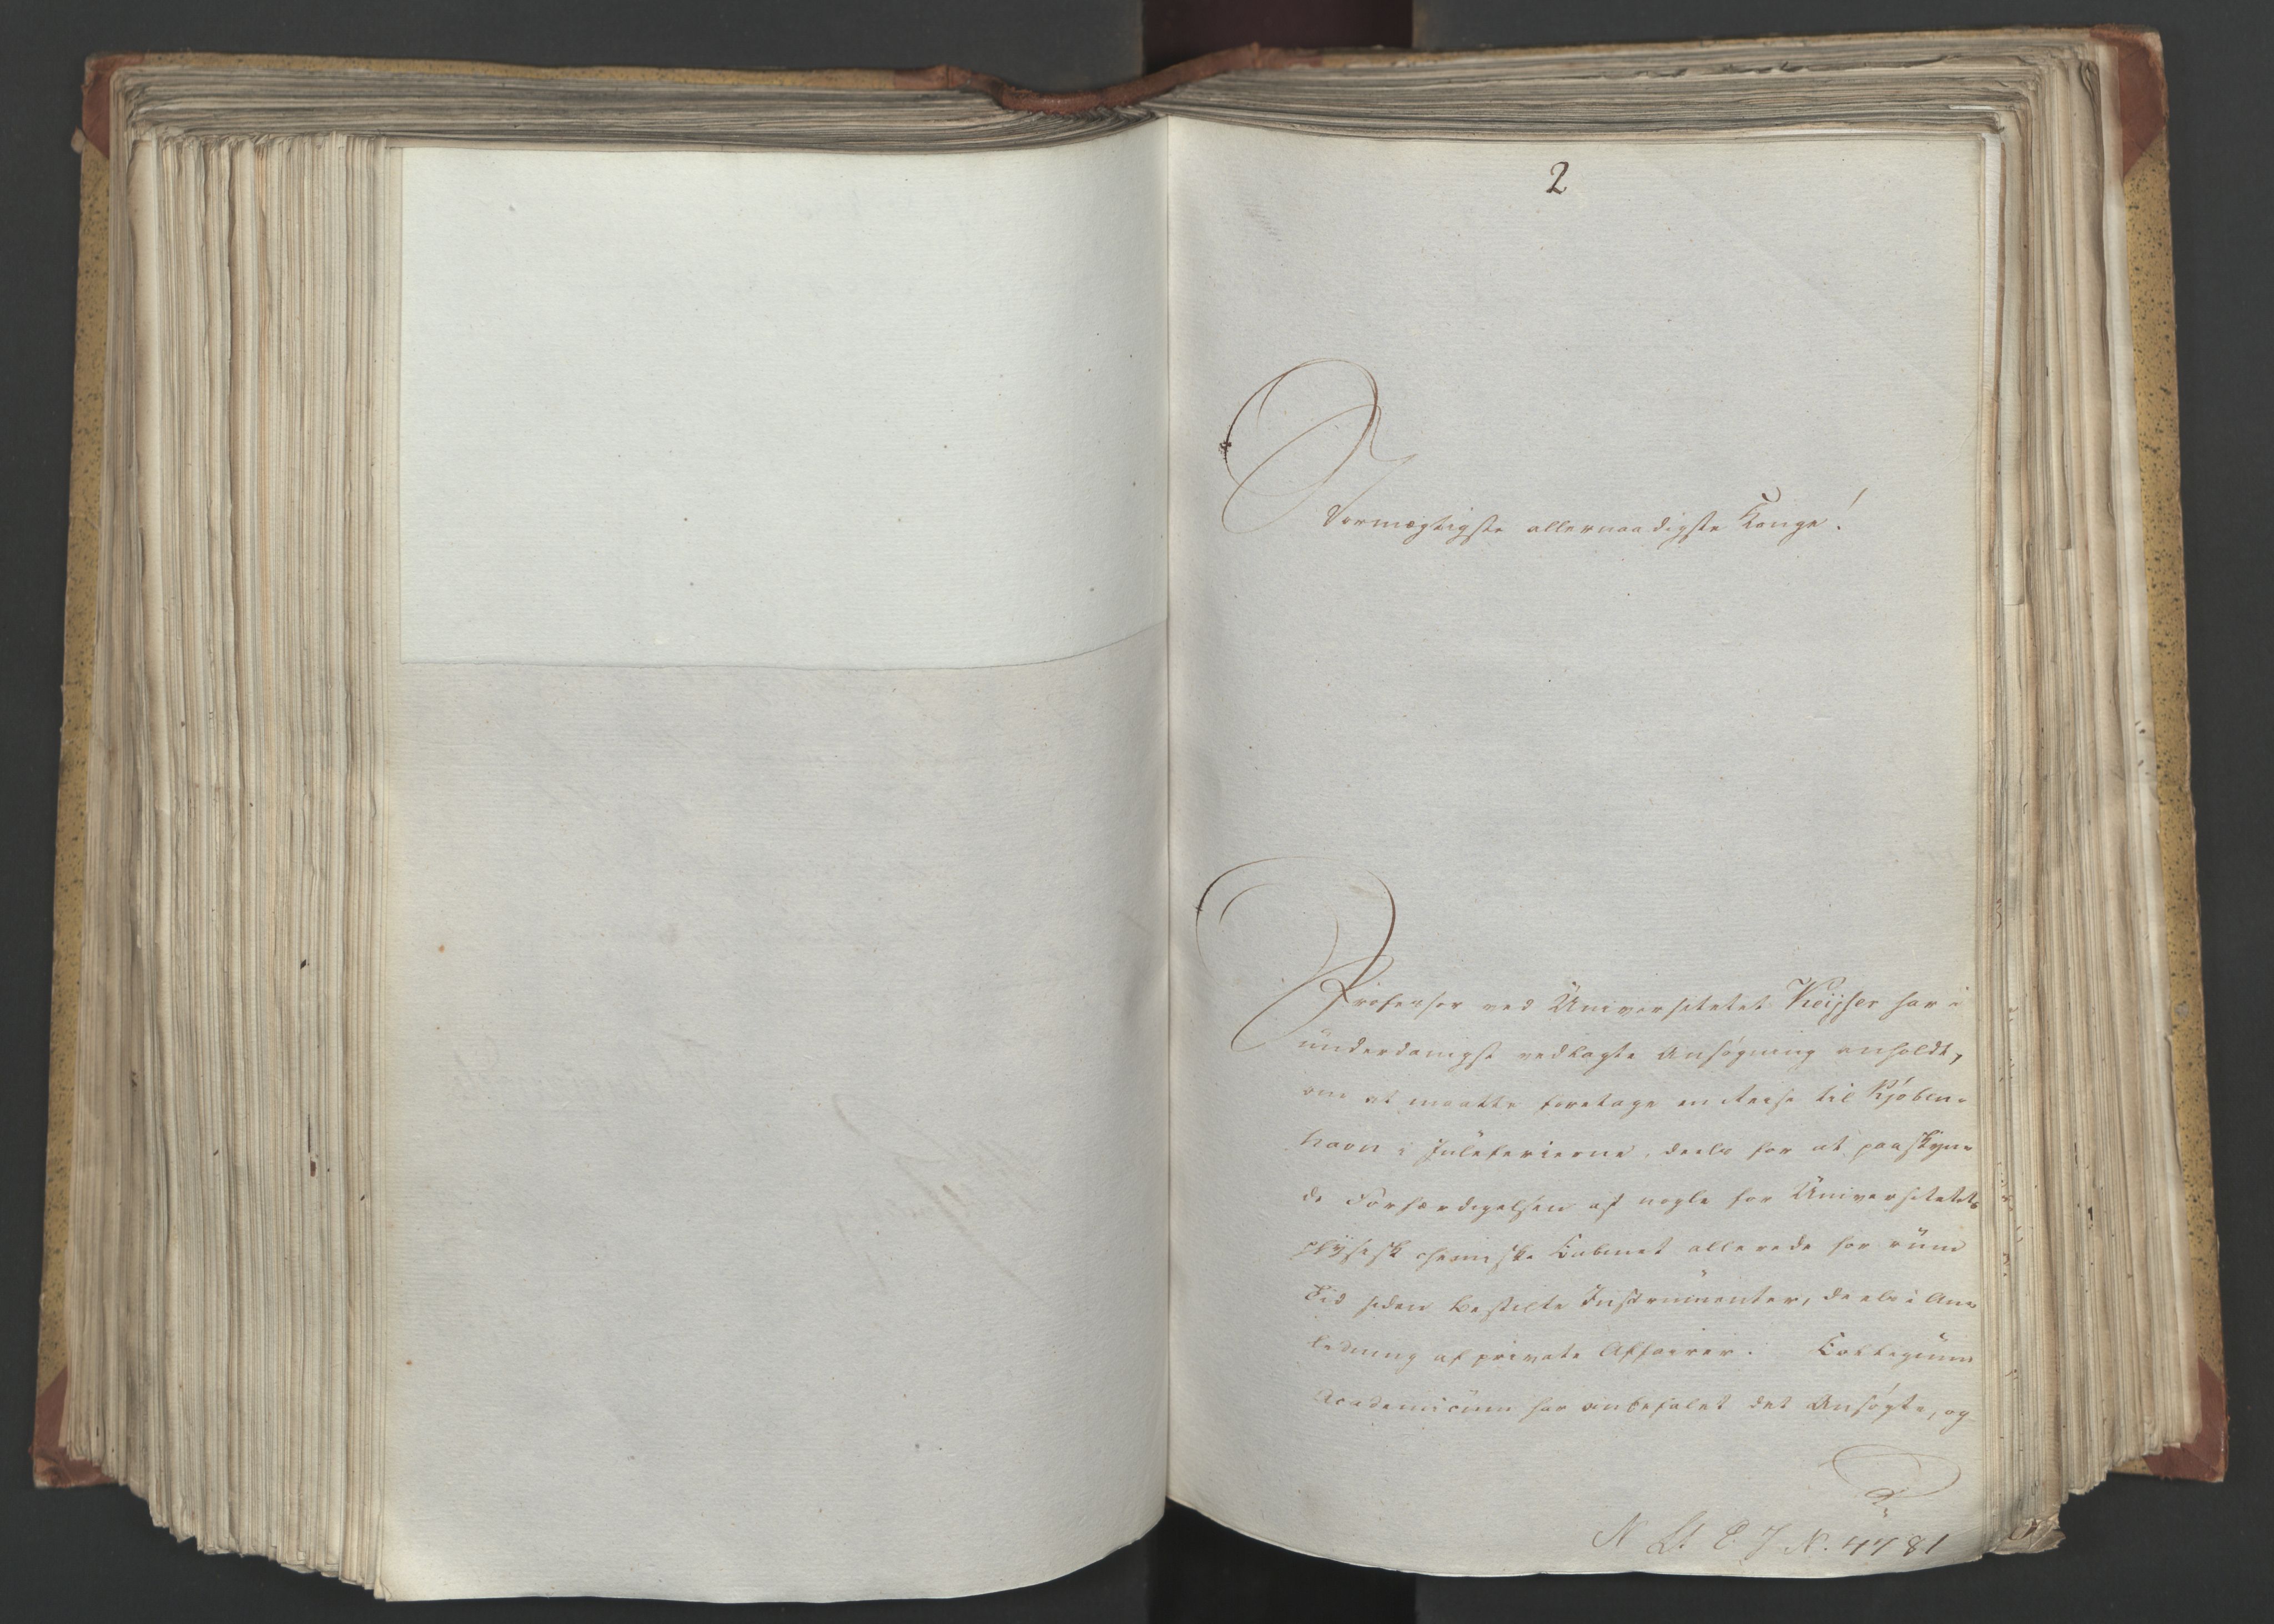 2
Stormægtigste allernaadigste Konge!
Professor ved Universitetet Keyser har i
underdanigst vedlagte Ansøgning anholdt,
om at maatte foretage en Reise til Kjøben-
havn i Juleferierne, deels for at paaskyn-
de Forfærdigelsen af nogle for Universitetets
physisk chemiske Cabinet allerede for rum
Tid siden bestilte Instrumenter, deels i An-
ledning af private Affairer. Collegium
Academicum har anbefalet det Ansøgte, og
N. 4781